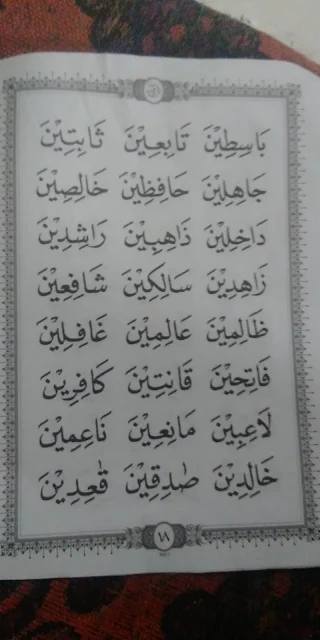 بَاسِطِيْنَ تَابِعِيْنَ ثَابِتِيْنَ
جَاهِلِيْنَ حَافِظِيْنَ خَالِصِيْنَ
دَاخِلِيْنَ ذَاهِبِيْنَ رَاشِدِيْنَ
زَاهِدِيْنَ سَالِكِيْنَ شَافِعِيْنَ
ظَالِمِيْنَ عَالِمِيْنَ غَافِلِيْنَ
فَاتِحِيْنَ قَانِتِيْنَ كَافِرِيْنَ
لَاعِبِيْنَ مَانِعِيْنَ نَاعِمِيْنَ
خَالِدِيْنَ صٰدِقِيْنَ قٰعِدِيْنَ
١٨